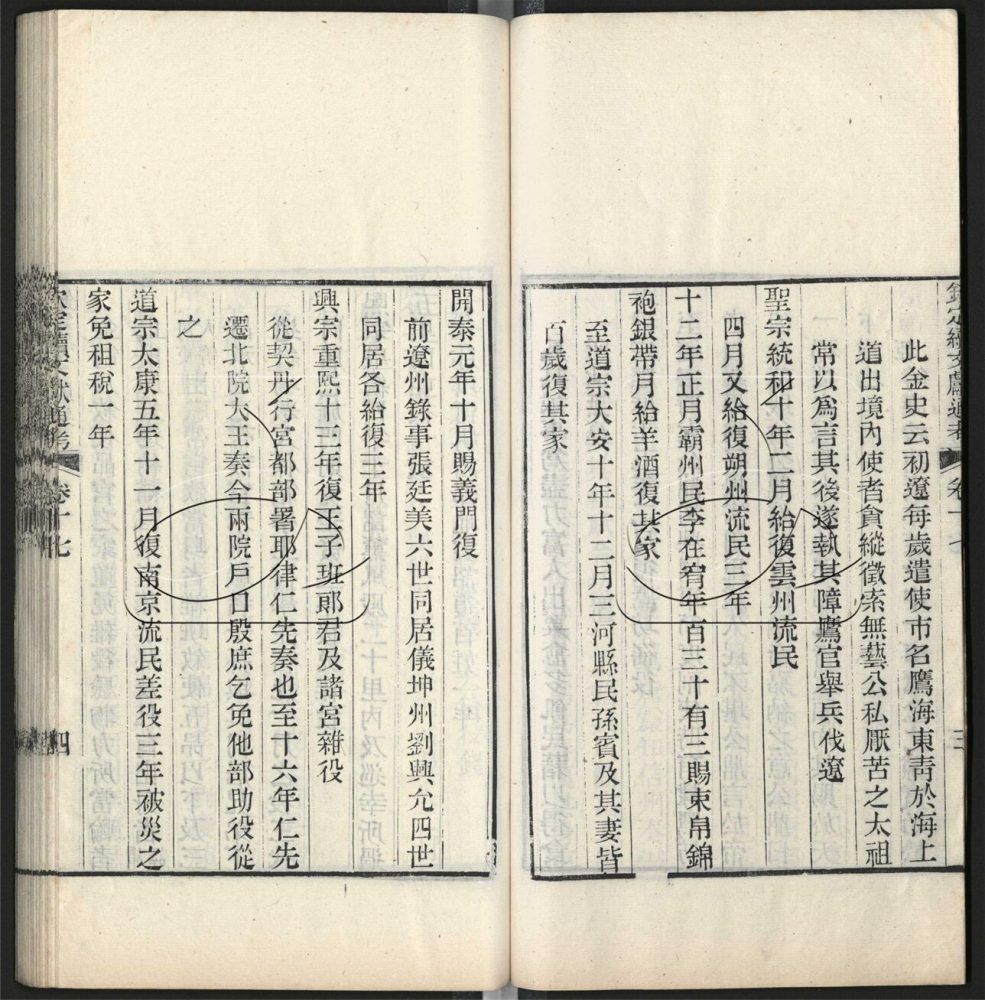 欽定續文獻通考 卷十七 三
此金史云初遼每歲遣使市名鷹海東青於海上
道出境內使者貪縱徵索無藝公私厭苦之太祖
常以爲言其後遂執其障鷹官舉兵伐遼
聖宗統和十年二月給復雲州流民
四月又給復朔州流民三年
十二年正月霸州民李在宥年百三十有三賜束帛錦
袍銀帶月給羊酒復其家
至道宗大安十年十二月三河縣民孫賓及其妻皆
百歲復其家
開泰元年十月賜義門復
前遼州錄事張廷美六世同居儀坤州劉興允四世
同居各給復三年
興宗重熙十三年復王子班郎君及諸宮雜役
從契丹行宮都部署耶律仁先奏也至十六年仁先
遷北院大王奏今兩院戶口殷庶乞免他部助役從
之
道宗太康五年十一月復南京流民差役三年被災之
家免租稅一年
欽定續文獻通考 卷十七 四